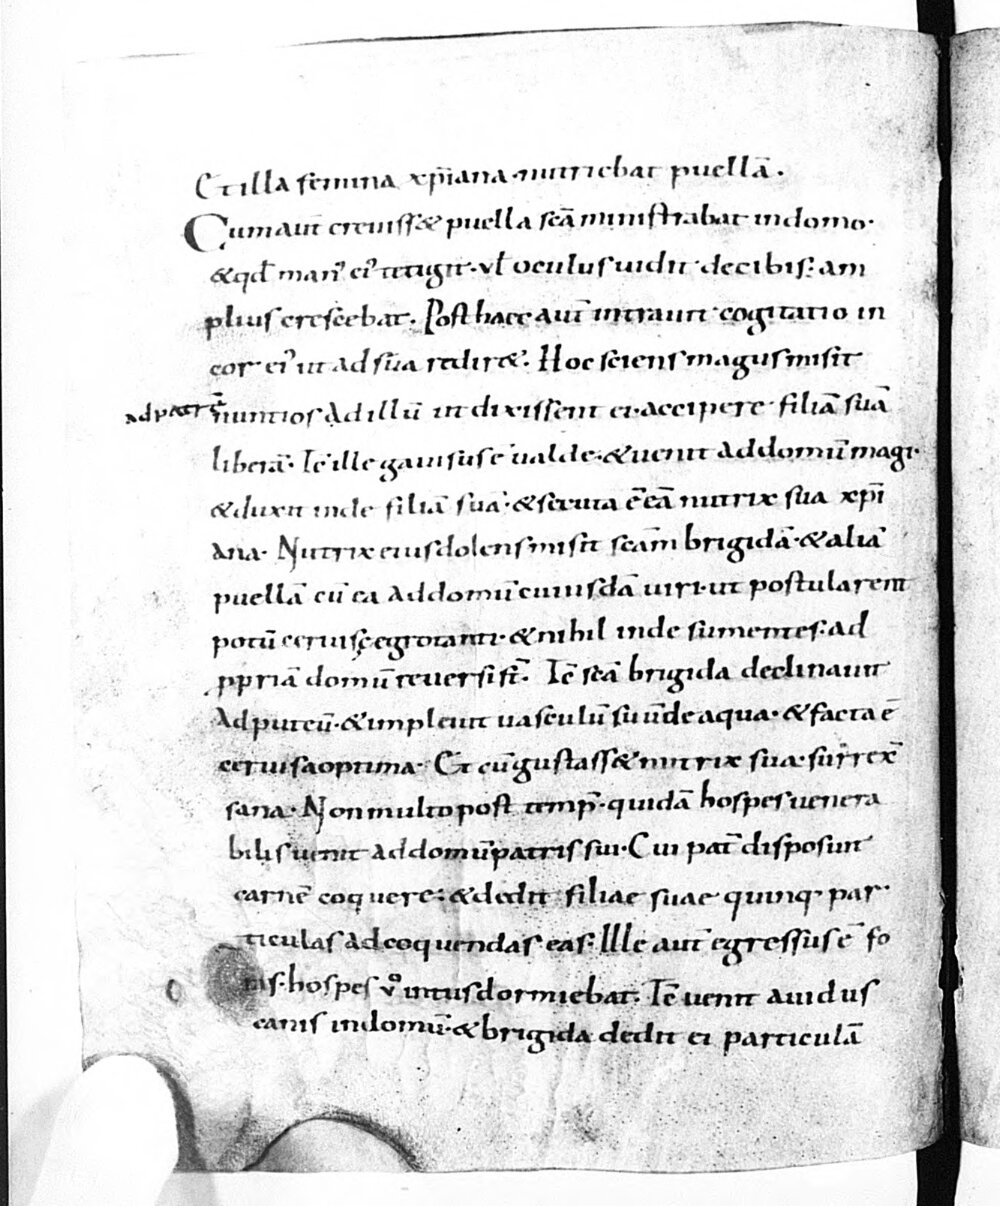 Et illa femina xp̄iana · nutriebat puellā .
Cum aut̄ creuiss& puella sc̄a ministrabat in domo ·
& qd̄ man᾽ ei᾽ tetigit · vl̄ oculus uidit de cibis : am
plius crescebat . Post haec aut̄ intrauit cogitatio in
cor ei᾽ ut ad sua redir& . Hoc sciens magus misit
ad patrē
nuntios ad illū ut dixissent ei · accipere filiā suā
liberā · Tc̄ ille gauisus ē ualde · & uenit ad domū magi ·
& duxit inde filiā suā · & secuta ē eā nutrix sua xp̄i
ana · Nutrix eius dolens misit sc̄am brigidā · & aliā
puellā cū ea ad domū cuiusdā uiri · ut postularent
potū ceruisę egrotanti · & nihil inde sumentes · ad
ppriā domū reuersi st̄ . Tc̄ sc̄a brigida declinauit
ad puteū · & impleuit uasculū suū de aqua · & facta ē
ceruisa optima · Et cū gustass& nutrix sua · surrex̄
sana · Non multo post temp̄ · quidā hospes uenera
bilis uenit ad domū patris sui · Cui pat̄ disposuit
carnē coquere : & dedit filiae suae quinq · par
ticulas ad coquendas eas · Ille aut̄ egressus ē fo
ris · hospes vº intus dormiebat . Tc̄ uenit auidus
canis in domū · & brigida dedit ei particulā